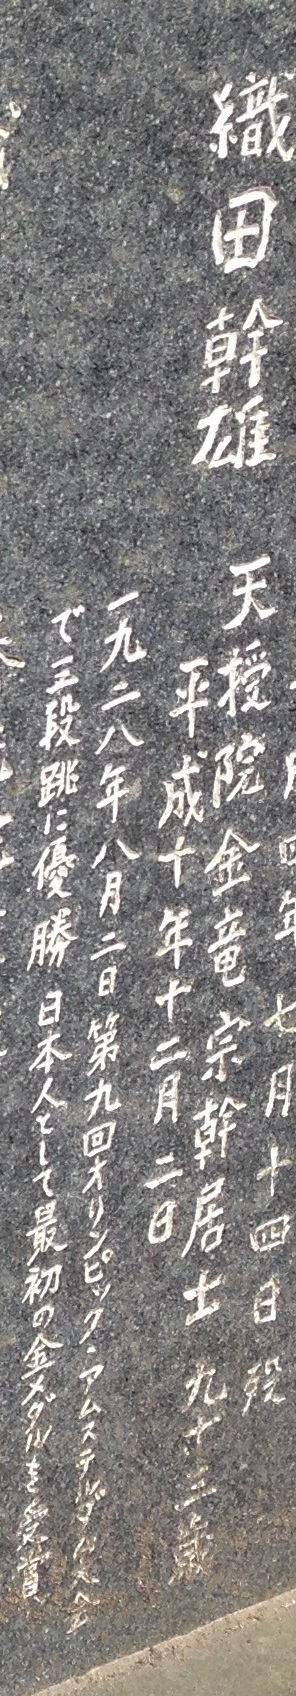 四年七月十四日歿
織田幹雄 天授院金竜宗幹居士 九十三歳
平成十年十二月二日
一九二八年八月二日第九回オリンピック・アムステルダム
で三段跳に優勝 日本人として最初の金メダルを受賞